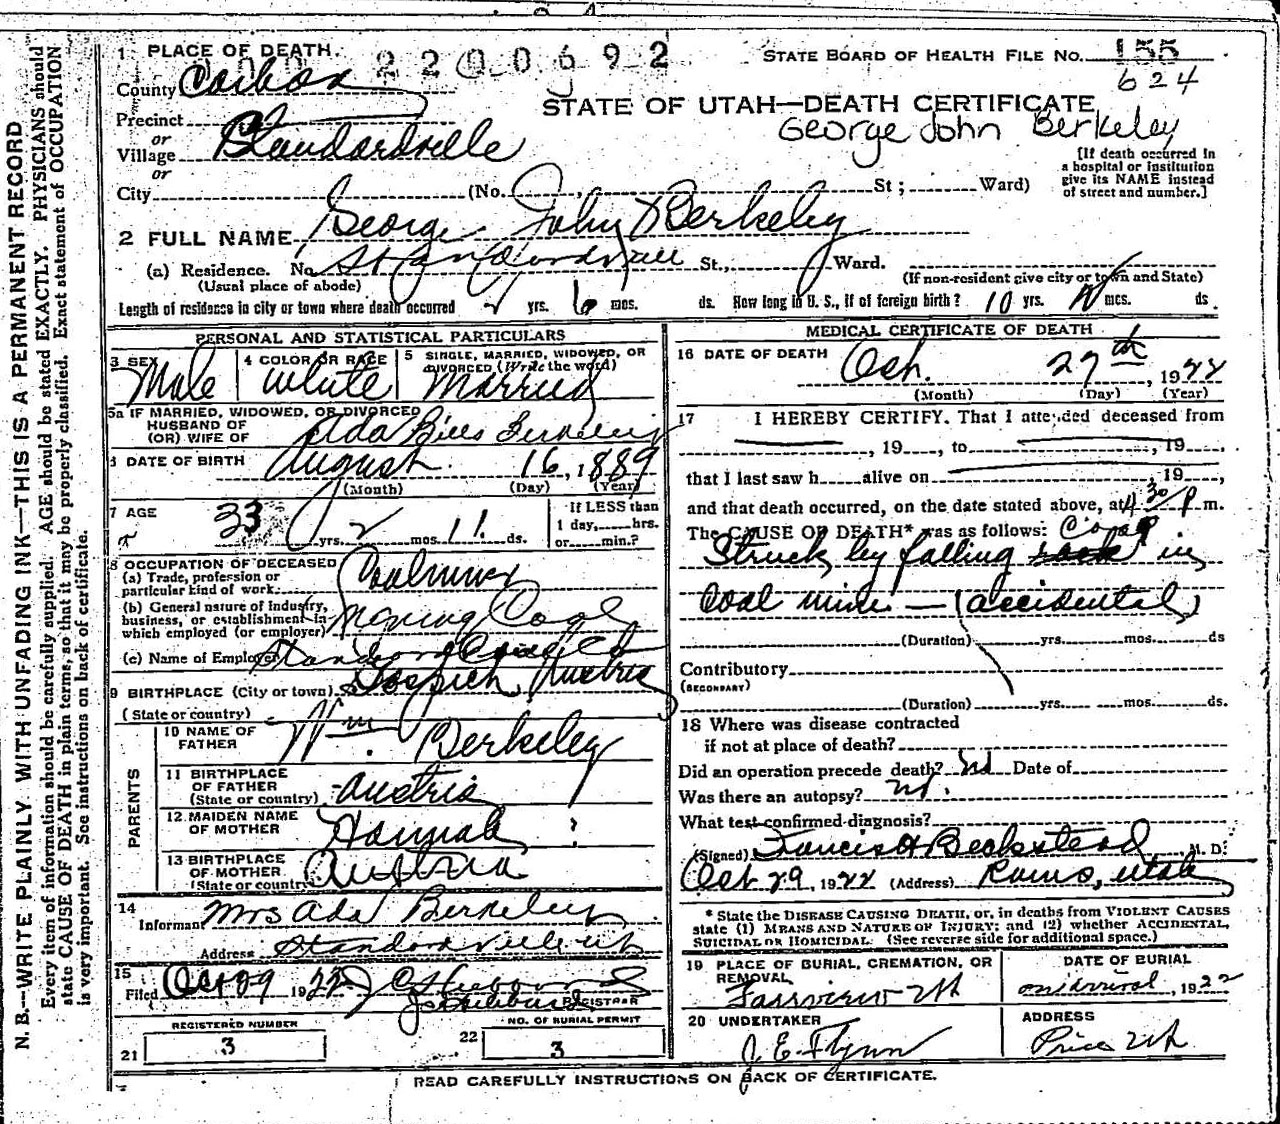 1 PLACE OF DEATH.
2200692
STATE BOARD OF HEALTH FILE No. 155
624
County Carbon
STATE OF UTAH—DEATH CERTIFICATE
George John Berkeley
Precinct
or
Village Standardville
or
City (No. St; Ward)
[If death occurred in
a hospital or institution
give its NAME instead
of street and number.]
2 FULL NAME George John Berkeley
(a) Residence. No. St., Ward.
(Usual place of abode)
(If non-resident give city or town and State)
Length of residence in city or town where death occurred yrs. 6 mos. ds. How long in U. S., if of foreign birth? 10 yrs. mos. ds
PERSONAL AND STATISTICAL PARTICULARS
3 SEX
Male
4 COLOR OR RACE
White
5 SINGLE, MARRIED, WIDOWED, OR
DIVORCED (Write the word)
Married
5a IF MARRIED, WIDOWED, OR DIVORCED
HUSBAND OF
(OR) WIFE OF Ada Berkeley
6 DATE OF BIRTH August 16, 1889
(Month) (Day) (Year)
7 AGE
33 yrs. 2 mos. 11 ds.
If LESS than
1 day, hrs.
or min.?
8 OCCUPATION OF DECEASED
(a) Trade, profession or
particular kind of work Coalminer
(b) General nature of Industry,
business, or establishment in
which employed (or employer) Mining Coal
(c) Name of Employer Standard Coal Co
9 BIRTHPLACE (City or town) Gospich, Austria
(State or country)
PARENTS
10 NAME OF
FATHER Wm. Berkeley
11 BIRTHPLACE
OF FATHER
(State or country) Austria
12 MAIDEN NAME
OF MOTHER Hannah ?
13 BIRTHPLACE
OF MOTHER
(State or country) Austria
14
Informant Mrs Ada Berkeley
Address Standardville Ut
15
Filed Oct 29 1922
REGISTRAR
REGISTERED NUMBER
21 3
NO. OF BURIAL PERMIT
22 3
MEDICAL CERTIFICATE OF DEATH
16 DATE OF DEATH
Oct. 27th, 1922
(Month) (Day) (Year)
17 I HEREBY CERTIFY. That I attended deceased from
, 19 , to , 19 ,
that I last saw h alive on 19 ,
and that death occurred, on the date stated above, at 4 30/P m.
The CAUSE OF DEATH* was as follows:
Struck by falling in
Coal mine — (accidental)
(Duration) yrs. mos. ds
Contributory
(SECONDARY)
(Duration) yrs. mos. ds.
18 Where was disease contracted
if not at place of death?
Did an operation precede death? No Date of
Was there an autopsy? No.
What test confirmed diagnosis?
(Signed) Francis H Beckstead M. D.
Oct 29 1922 (Address) Rains, Utah
* State the DISEASE CAUSING DEATH, or, in deaths from VIOLENT CAUSES
state (1) MEANS AND NATURE OF INJURY; and (2) whether ACCIDENTAL,
SUICIDAL OR HOMICIDAL. (See reverse side for additional space.)
19 PLACE OF BURIAL, CREMATION, OR
REMOVAL
Fairview Ut
DATE OF BURIAL
on arrival, 1922
20 UNDERTAKER
J. E. Flynn
ADDRESS
Price Ut
READ CAREFULLY INSTRUCTIONS ON BACK OF CERTIFICATE.
N. B.—WRITE PLAINLY WITH UNFADING INK—THIS IS A PERMANENT RECORD
Every item of information should be carefully supplied. AGE should be stated EXACTLY. PHYSICIANS should
state CAUSE OF DEATH in plain terms, so that it may be properly classified. Exact statement of OCCUPATION
is very important. See instructions on back of certificate.